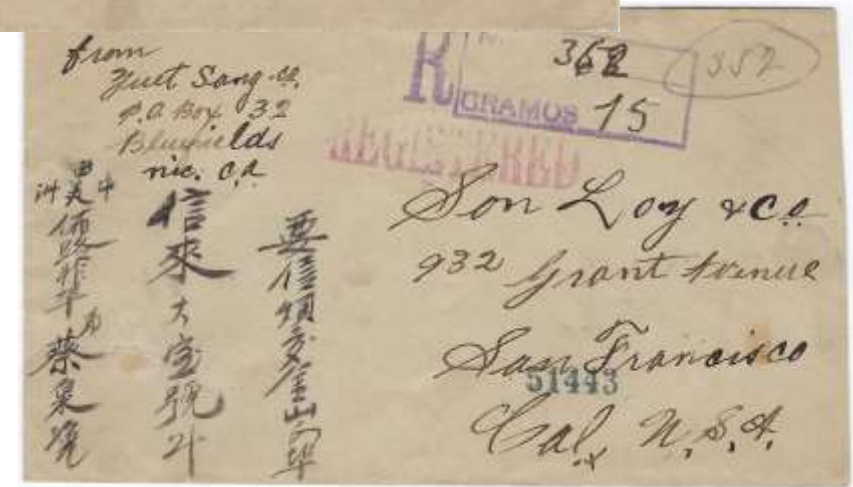 from
Yuet Sang Co.
P.O Box 32
Bluefields
nic. C.A.
R
N.
368
GRAMOS 15
352
REGISTERED
Son Loy & Co.
932 Grant Avenue
San Francisco
51443
Cal, U.S.A.
要信煩交金山
信來大宝號
由中美洲
蔡泉